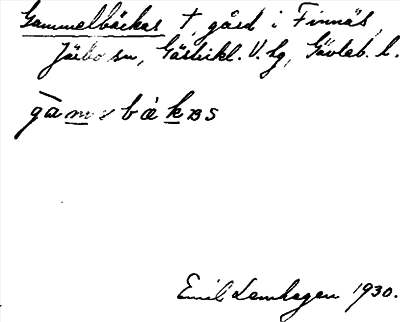 Gammelbäckas †, gård i Finnäs,
Järbo sn, Gästrikl. V. hg, Gävleb. l.
Emil Lamhagen 1930.